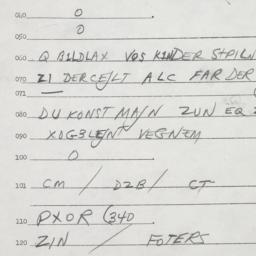 040 0
050 0
060 Q AILDLAX VOS KINDER SPILN
070 ZI DERCEJLT ALC FAR DER
071
080 DU KONST MAJN ZUN EQ
090 XOGELEJNT VEGNEM
100 0
101 CM / DZB / CT
110 PXOR (340
120 ZIN / FOTERS